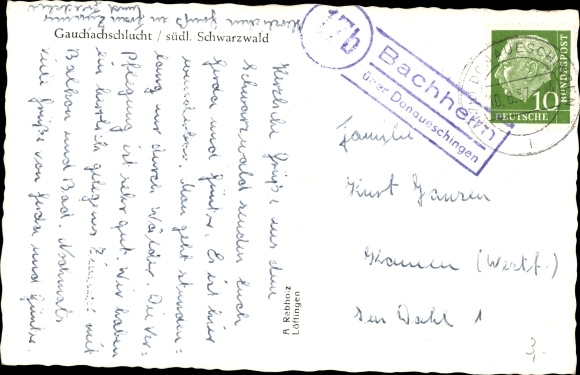 Herzlichen Gruß an
Gauchachschlucht / südl. Schwarzwald
Herzliche Grüße aus dem
Schwarzwald senden Euch
Gerda und Günter. Es ist hier
wunderbar. Man geht stunden=
lang nur durch Wälder. Die Ver=
pflegung ist sehr gut. Wir haben
ein herrlich gelegnes Zimmer mit
Balkon und Bad. Nochmals
viele Grüße von Gerda und Günter.
A. Rebholz
Löffingen
17b
Bachheim
über Donaueschingen
DONAUESCH
10
DEUTSCHE
BUNDESPOST
Familie
Kurt Jansen
Kamen (Westf.)
Den Dahl 1
3,-